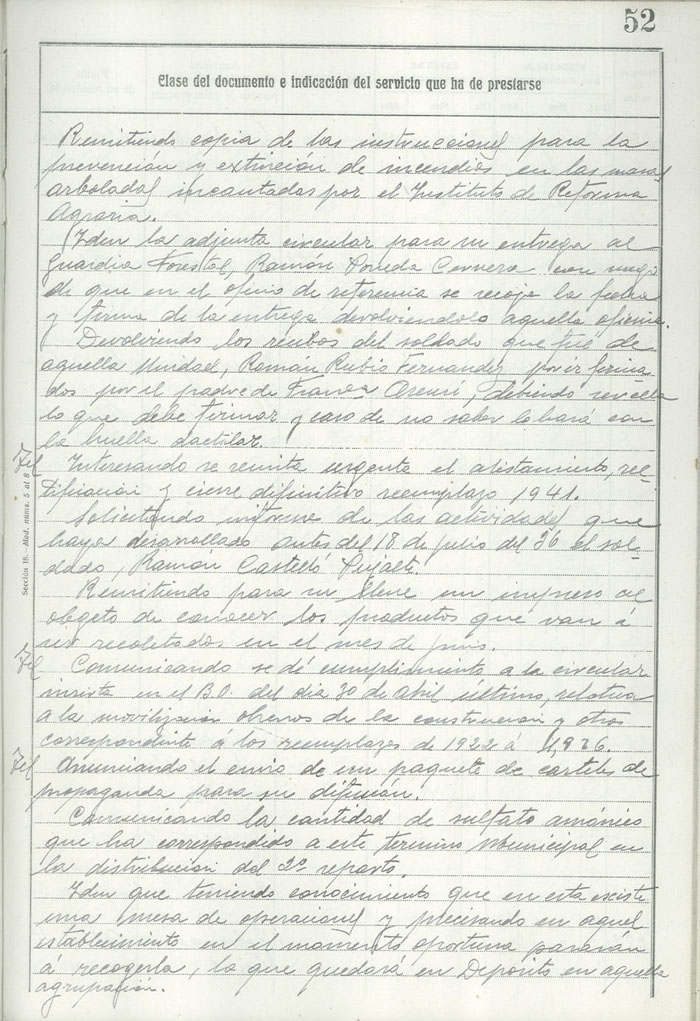 52
Clase del documento e indicación del servicio que ha de prestarse
Remitiendo copia de las instrucciones para la
prevención y extinción de incendios en las masas
arboladas incautadas por el Instituto de Reforma
Agraria.
Iden la adjunta circular para su entrega al
Guardia Forestal, Ramón Poveda Cervera con ruego
de que en el oficio de referencia se recoja la fecha
y firma de la entrega devolviéndolo aquella oficina.
Devolviendo los recibos del soldado que fué de
aquella Unidad, Ramón Rubio Fernandez por ir firma-
dos por el padre de Franca Asensi, debiendo ser ella
la que debe firmar y caso de no saber lo hará con
la huella dactilar.
Tel Interesando se remita urgente el alistamiento, rec-
tificación y cierre difinitivo reemplazo 1941.
Solicitando informe de las actividades que
haya desarrollado antes del 18 de julio del 36 el sol-
dado, Ramón Castelló
Remitiendo para su llene un impreso al
obgeto de conocer los productos que van á
ser recolectados en el mes de junio.
Tel Comunicando se dé cumplimiento a la circular
inserta en el B.O. del dia 30 de abril último, relativa
a la movilizacion obreros de la construcción y otros
correspondiente á los reemplazos de 1922 á 1926.
Tel Anunciando el envio de un paquete de carteles de
propaganda para su difusión.
Comunicando la cantidad de sulfato amónico
que ha correspondido a este termino Municipal en
la distribucion del 2º reparto.
Iden que teniendo conocimiento que en esta existe
una mesa de operaciones y precisando en aquel
establecimiento en el momento oportuno pasarán
á recogerla, la que quedará en Deposito en aquella
agrupación.
Sección 18.—Mod. núms. 5 al 8